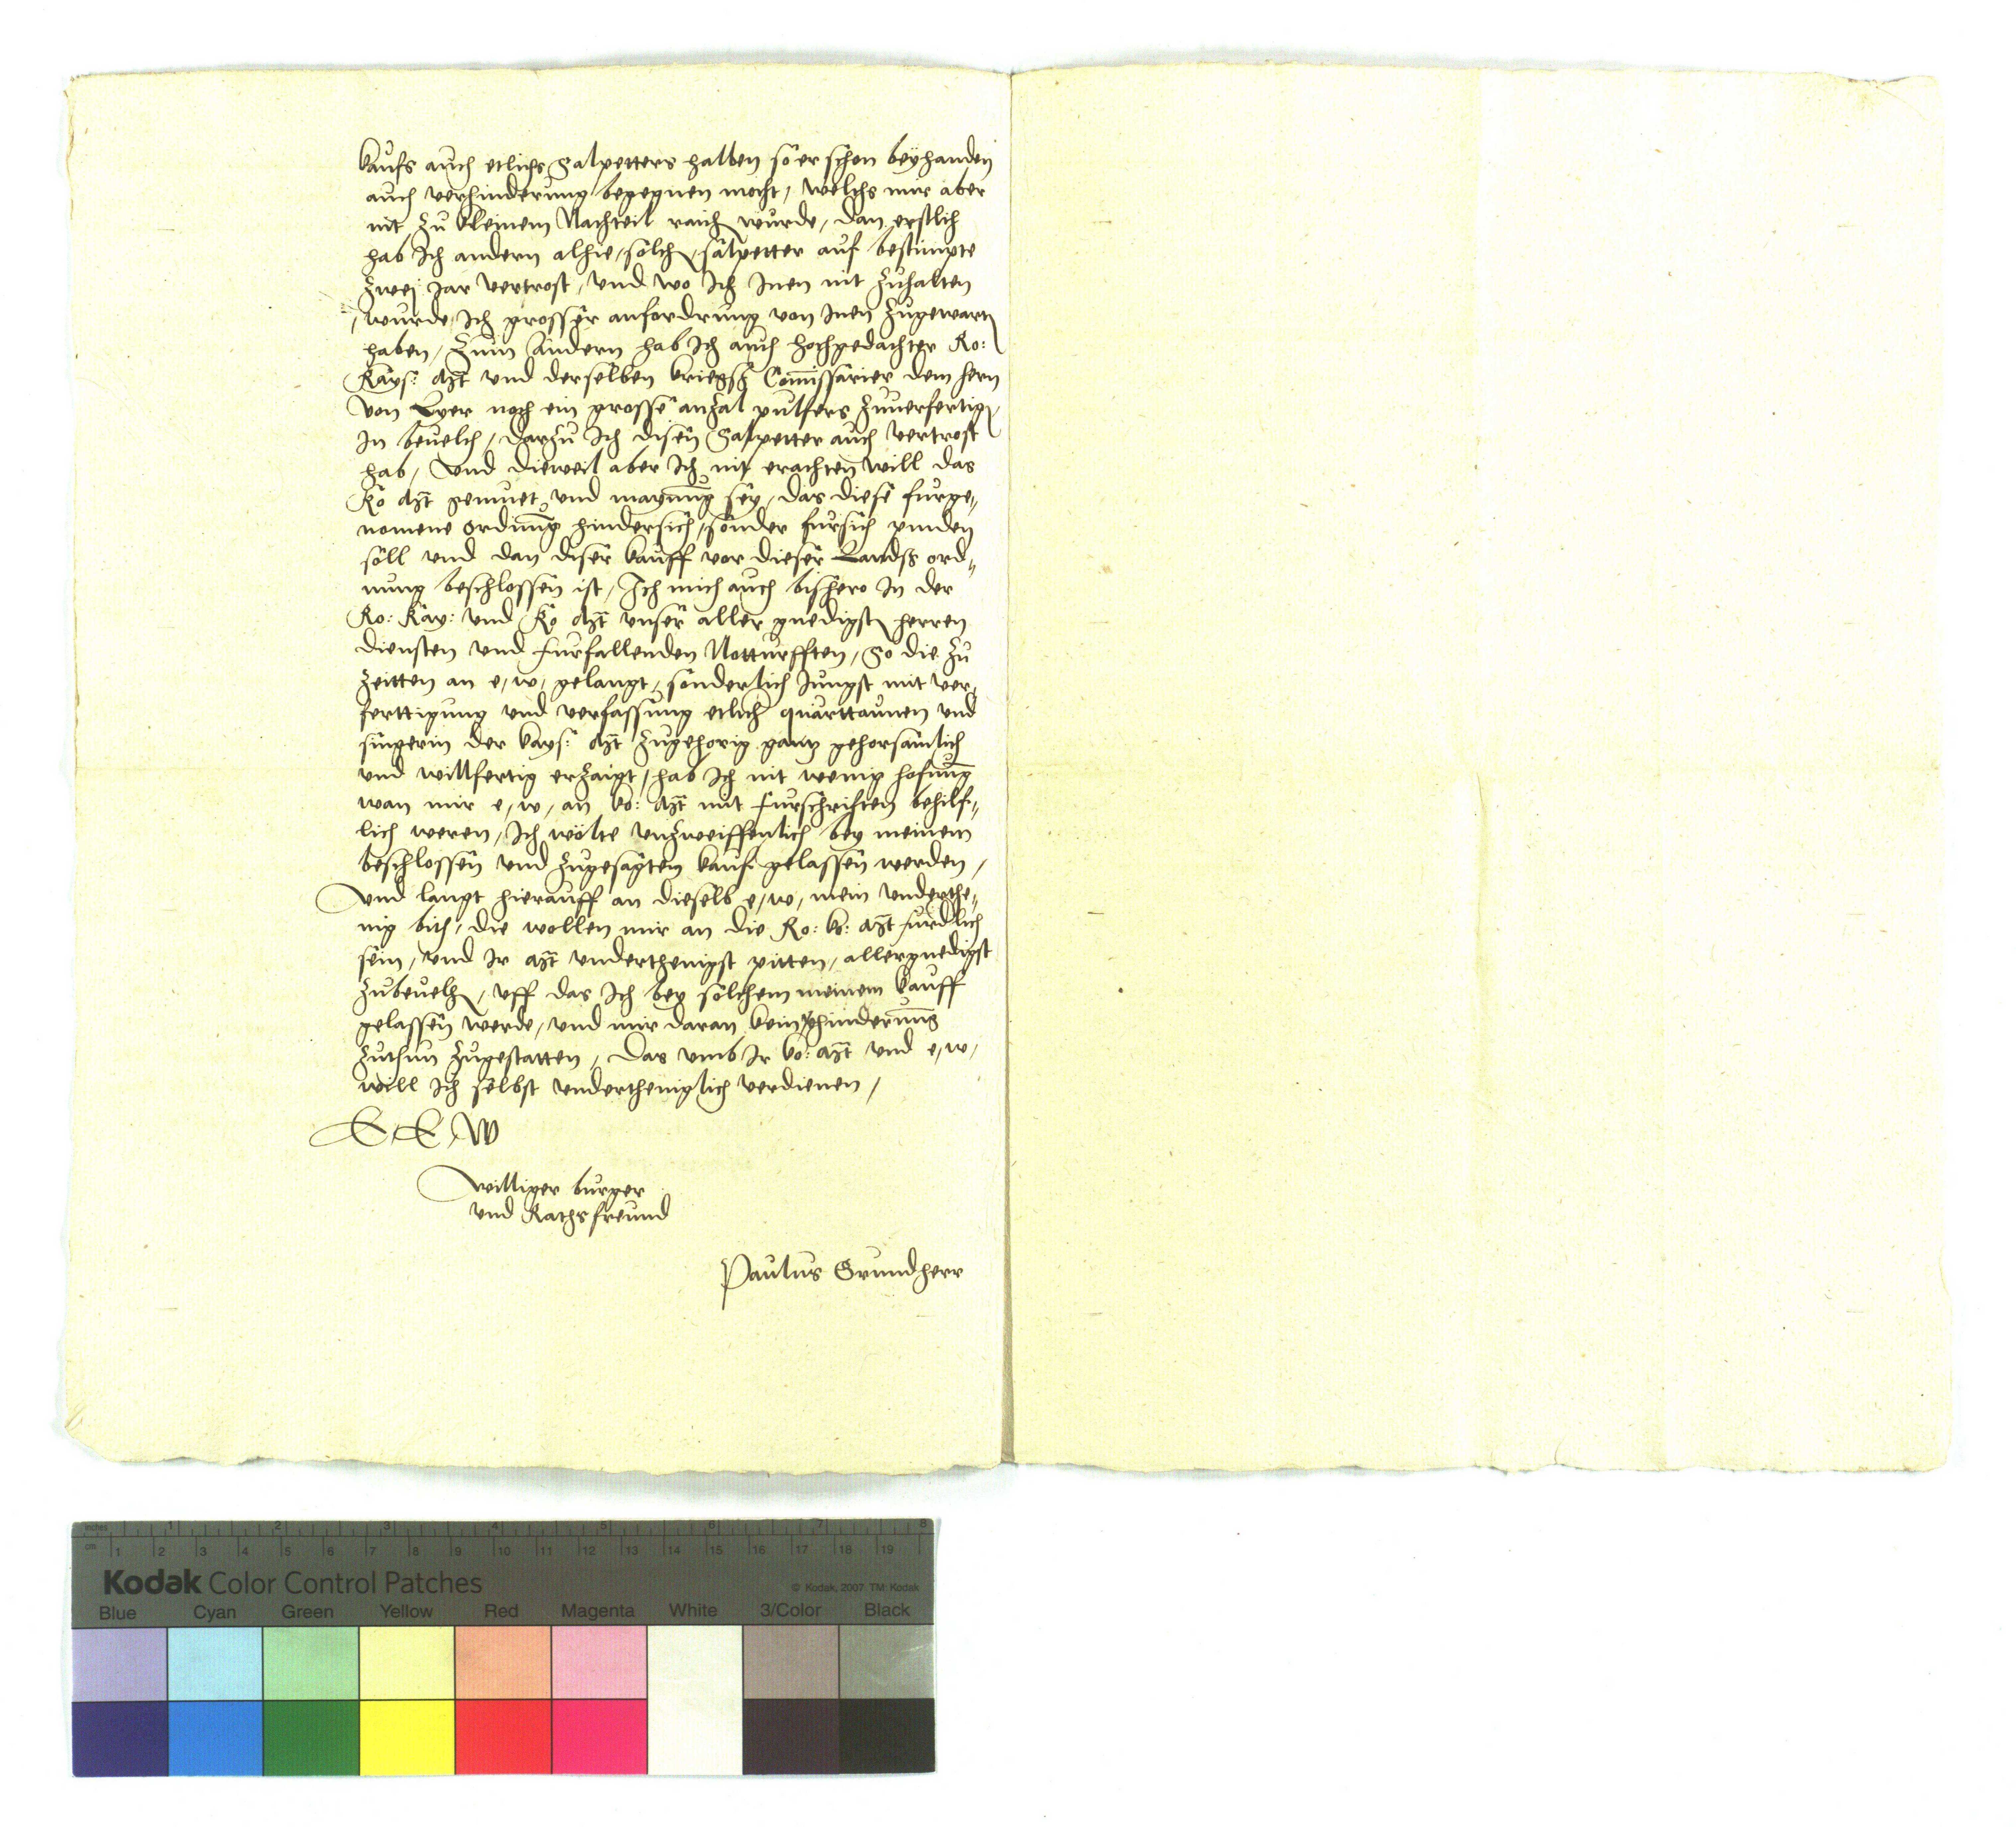 kaufs auch etlichs Salpetters halben so er schon beyhanden
auch verhinderung begegnen mocht, welchs mir aber
nit zu kleinem Nachteil raich wurde, dan erstlich
hab Ich andern alhie, solch, salpetter auf bestimpte
zwej jar vertrost, und wo Ich Inen nit zuhalten
wurde, Ich grosser anfordrung von Inen zugewarten
haben, Zum Andern hab Ich auch hochgedachter Ro:
Kays: Mt und derselben kriegss Comissarier dem hern
von Lyer noch ein grosse anzal pulfers zuuerfertigen
In beuelch, darzu Ich disen Salpetter auch vertrost
hab, Und dieweil aber Ich nit erachten will das
Ko Mt gemuet und maynung sey, das diese furge„
nomene ordnung hindersich, sonder fursich pinden
soll und dan diser kauff vor dieser Landss ord„
nung beschlossen ist, Ich mich auch bisshero In der
Ro: Kay: und Ko Mt unser aller gnedigsten herren
diensten und furfallenden Notturfften, So die zu
zeitten an e, w, gelangt, sonderlich Jungst mit ver„
ferttigung und verfassung etlicher quarttaunen und
singerin der kays: Mt zugehorig gantz gehorsamlich
und willfertig erzaigt, hab Ich nit wenig hofnung
wan mir e, w, an ko: Mt mit furschriften behilf„
lich weren, Ich wolte unzweiffenlich bey meinem
beschlossen und zugesagten kauf gelassen werden,
Und langt hierauff an dieselb e, w, mein underthe„
nig bith, die wollen mir an die Ro: k: Mt furdlich
sein, und Ir Mt underthenigst pitten, allergnedigst
zubeuelhen, uff das Ich bey solchem meinem kauff
gelassen werde, und mir daran kein verhinderung
zuthun zugestatten, Das umb Ir ko: Mt und e, w,
will Ich selbst undertheniglich verdienen,
E, E, W
williger burger
und Rathsfreund
Paulus Grundherr
inches 1 2 3 4 5 6 7 8
cm 1 2 3 4 5 6 7 8 9 10 11 12 13 14 15 16 17 18 19
Kodak Color Control Patches © Kodak, 2007 TM: Kodak
Blue Cyan Green Yellow Red Magenta White 3/Color Black